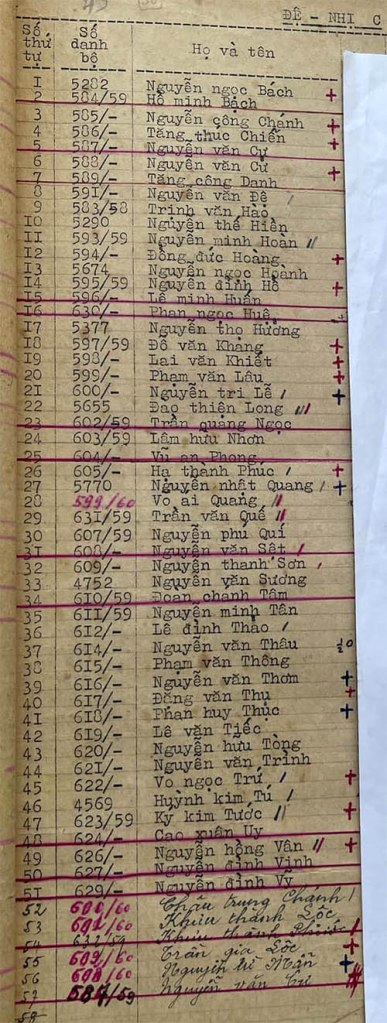 ĐỆ - NHỊ C
Số thứ tự Số danh bộ Họ và tên
I 5282 Nguyễn ngọc Bách +
2 584/59 Hồ minh Bạch
3 585/- Nguyễn công Chánh +
4 586/- Tăng thúc Chiến +
5 587/- Nguyễn văn Cư
6 588/- Nguyễn văn Cử +
7 589/- Tăng công Danh
8 59I/- Nguyễn văn Đệ /
9 583/58 Trịnh văn Hào
IO 5290 Nguyễn thế Hiền
II 593/59 Nguyễn minh Hoàn //
I2 594/- Đồng đức Hoàng +
I3 5674 Nguyễn ngọc Hoành
I4 595/59 Nguyễn đình Hồ +
I5 596/- Lê minh Huấn
I6 630/- Phan ngọc Huệ
I7 5377 Nguyễn thọ Hương
I8 597/59 Đỗ văn Kháng +
I9 598/- Lai văn Khiết +
20 599/- Phạm văn Lâu +
2I 600/- Nguyễn tri Lễ / +
22 5655 Đạo thiện Long //
23 602/59 Trần quang Ngọc
24 603/59 Lâm hưu Nhơn
25 604/- Vũ an Phong
26 605/- Hạ thành Phúc / +
27 5770 Nguyễn nhật Quang / +
28 599/60 Võ ai Quang //
29 63I/59 Trần văn Quế //
30 607/59 Nguyễn phú Quí
3I 608/- Nguyễn văn Sết /
32 609/- Nguyễn thanh Sơn /
33 4752 Nguyễn văn Sương
34 6I0/59 Đoàn chánh Tâm
35 6II/59 Nguyễn minh Tân
36 6I2/- Lê đình Thảo /
37 6I4/- Nguyễn văn Thâu
38 6I5/- Phạm văn Thông
39 6I6/- Nguyễn văn Thơm +
40 6I7/- Đặng văn Thu +
4I 6I8/- Phan huy Thục +
42 6I9/- Lê văn Tiếc
43 620/- Nguyễn hữu Tòng
44 62I/- Nguyễn văn Trinh
45 622/- Võ ngọc Trứ / +
46 4569 Huỳnh kim Tú /
47 623/59 Kỵ kim Tước // +
48 624/- Cao xuân Uy
49 626/- Nguyễn hồng Vân // +
50 627/- Nguyễn đình Vinh
5I 629/- Nguyễn đình Vỹ
52 600/60 Châu trung Chánh /
53 601/60 Khưu thành Lốc
54 Khưu thành /
55 602/60 Trần gia Lốc +
56 608/60 Nguyễn Mẫn +
57 587/59 Nguyễn văn Cư
58